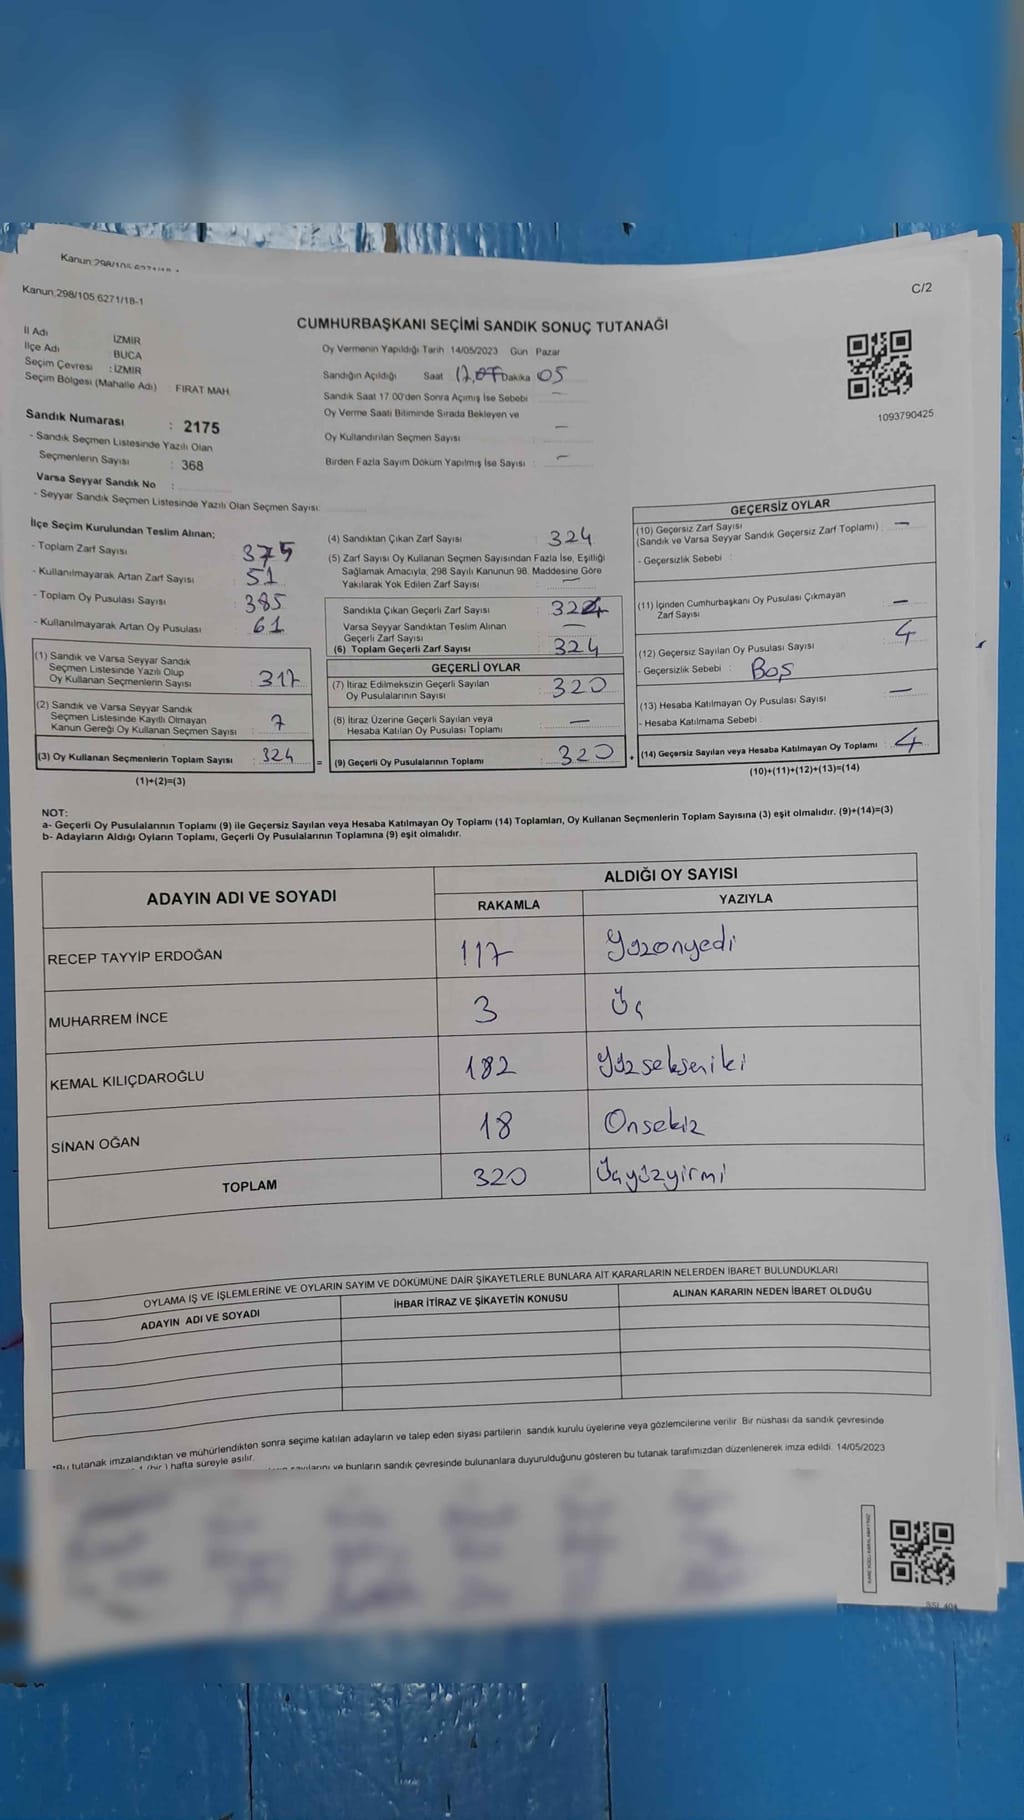 Kanun:298/105
Kanun:298/105 6271/18-1
C/2
CUMHURBAŞKANI SEÇİMİ SANDIK SONUÇ TUTANAĞI
İl Adı İZMİR
İlçe Adı BUCA
Seçim Çevresi : İZMİR
Seçim Bölgesi (Mahalle Adı) : FIRAT MAH.
Sandık Numarası : 2175
- Sandık Seçmen Listesinde Yazılı Olan
Seçmenlerin Sayısı : 368
Varsa Seyyar Sandık No :
- Seyyar Sandık Seçmen Listesinde Yazılı Olan Seçmen Sayısı:
Oy Vermenin Yapıldığı Tarih 14/05/2023 Gün Pazar
Sandığın Açıldığı Saat Dakika 05
Sandık Saat 17.00'den Sonra Açımış İse Sebebi : —
Oy Verme Saati Bitiminde Sırada Bekleyen ve
Oy Kullandırılan Seçmen Sayısı : —
Birden Fazla Sayım Döküm Yapılmış İse Sayısı : —
1093790425
İlçe Seçim Kurulundan Teslim Alınan;
- Toplam Zarf Sayısı : 375
- Kullanılmayarak Artan Zarf Sayısı : 51
- Toplam Oy Pusulası Sayısı : 385
- Kullanılmayarak Artan Oy Pusulası : 61
(1) Sandık ve Varsa Seyyar Sandık
Seçmen Listesinde Yazılı Olup
Oy Kullanan Seçmenlerin Sayısı : 317
(2) Sandık ve Varsa Seyyar Sandık
Seçmen Listesinde Kayıtlı Olmayan
Kanun Gereği Oy Kullanan Seçmen Sayısı : 7
(3) Oy Kullanan Seçmenlerin Toplam Sayısı : 324
(1)+(2)=(3)
(4) Sandıktan Çıkan Zarf Sayısı : 324
(5) Zarf Sayısı Oy Kullanan Seçmen Sayısından Fazla İse, Eşitliği
Sağlamak Amacıyla, 298 Sayılı Kanunun 98. Maddesine Göre
Yakılarak Yok Edilen Zarf Sayısı : —
Sandıkta Çıkan Geçerli Zarf Sayısı : 324
Varsa Seyyar Sandıktan Teslim Alınan
Geçerli Zarf Sayısı : —
(6) Toplam Geçerli Zarf Sayısı : 324
GEÇERLİ OYLAR
(7) İtiraz Edilmeksizin Geçerli Sayılan
Oy Pusulalarının Sayısı : 320
(8) İtiraz Üzerine Geçerli Sayılan veya
Hesaba Katılan Oy Pusulası Toplamı : —
= (9) Geçerli Oy Pusulalarının Toplamı : 320 +
GEÇERSİZ OYLAR
(10) Geçersiz Zarf Sayısı
(Sandık ve Varsa Seyyar Sandık Geçersiz Zarf Toplamı) : —
- Geçersizlik Sebebi :
(11) İçinden Cumhurbaşkanı Oy Pusulası Çıkmayan
Zarf Sayısı : —
(12) Geçersiz Sayılan Oy Pusulası Sayısı : 4
- Geçersizlik Sebebi : Boş
(13) Hesaba Katılmayan Oy Pusulası Sayısı : —
- Hesaba Katılmama Sebebi :
(14) Geçersiz Sayılan veya Hesaba Katılmayan Oy Toplamı : 4
(10)+(11)+(12)+(13)=(14)
NOT:
a- Geçerli Oy Pusulalarının Toplamı (9) ile Geçersiz Sayılan veya Hesaba Katılmayan Oy Toplamı (14) Toplamları, Oy Kullanan Seçmenlerin Toplam Sayısına (3) eşit olmalıdır. (9)+(14)=(3)
b- Adayların Aldığı Oyların Toplamı, Geçerli Oy Pusulalarının Toplamına (9) eşit olmalıdır.
ADAYIN ADI VE SOYADI
ALDIĞI OY SAYISI
RAKAMLA YAZIYLA
RECEP TAYYİP ERDOĞAN 117 Yüzonyedi
MUHARREM İNCE 3 Üç
KEMAL KILIÇDAROĞLU 182 Yüzsekseniki
SİNAN OĞAN 18 Onsekiz
TOPLAM 320 Üçyüzyirmi
OYLAMA İŞ VE İŞLEMLERİNE VE OYLARIN SAYIM VE DÖKÜMÜNE DAİR ŞİKAYETLERLE BUNLARA AİT KARARLARIN NELERDEN İBARET BULUNDUKLARI
ADAYIN ADI VE SOYADI İHBAR İTİRAZ VE ŞİKAYETİN KONUSU ALINAN KARARIN NEDEN İBARET OLDUĞU
*Bu tutanak imzalandıktan ve mühürlendikten sonra seçime katılan adayların ve talep eden siyasi partilerin sandık kurulu üyelerine veya gözlemcilerine verilir. Bir nüshası da sandık çevresinde
1 (bir) hafta süreyle asılır.
ve bunların sandık çevresinde bulunanlara duyurulduğunu gösteren bu tutanak tarafımızdan düzenlenerek imza edildi. 14/05/2023